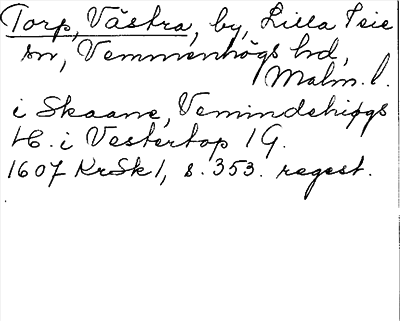 Torp, Västra, by, Lilla Isie
sn, Vemmenhögs hd,
Malm. l.
i Skaane, Vemindehiøgs
H. i Vestertop 1 G.
1607 KrSk 1, s. 353. regest.